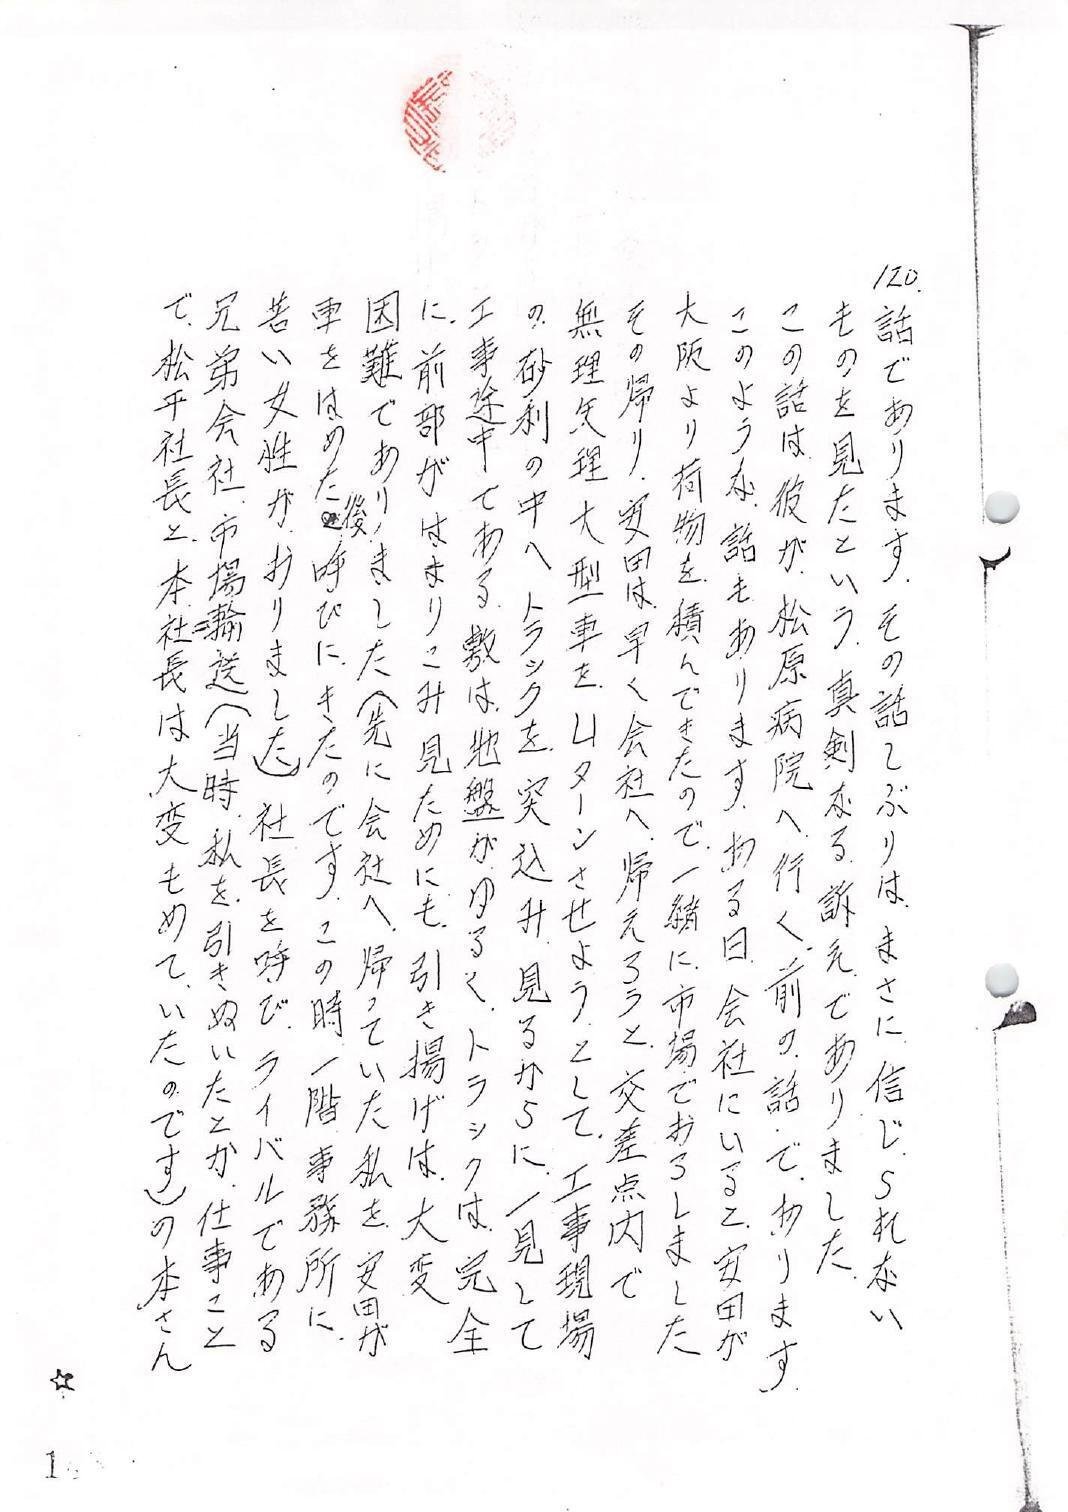 120.
話であります。その話しぶりは、まさに信じられない
ものを見たという、真剣なる訴えでありました
この話は、彼が、松原病院へ行く、前の、話で、あります
このような、話もあります。ある日、会社にいると、安田が
大阪より荷物を、積んできたので、一緒に、市場でおろしました
その帰り、安田は、早く会社へ、帰えろうと、交差点内で
無理矢理大型車を、Uターンさせよう、として、工事現場
の、砂利の中へ、トラックを、突込み、見るからに、一見して
工事途中である、敷は、地盤がゆるく、トラックは、完全
に、前部が、はまりこみ見ためにも、引き揚げは、大変
困難であり、ました(先に会社へ、帰っていた私を、安田が
車をはめた後、呼びに、きたのです、この時、一階事務所に、
若い女性が、おりました)社長を呼び、ライバルである
兄弟会社、市場輸送(当時、私を、引きぬいたとか、仕事こと
で、松平社長と、本社長は大変もめて、いたのです)の本さん
☆
1